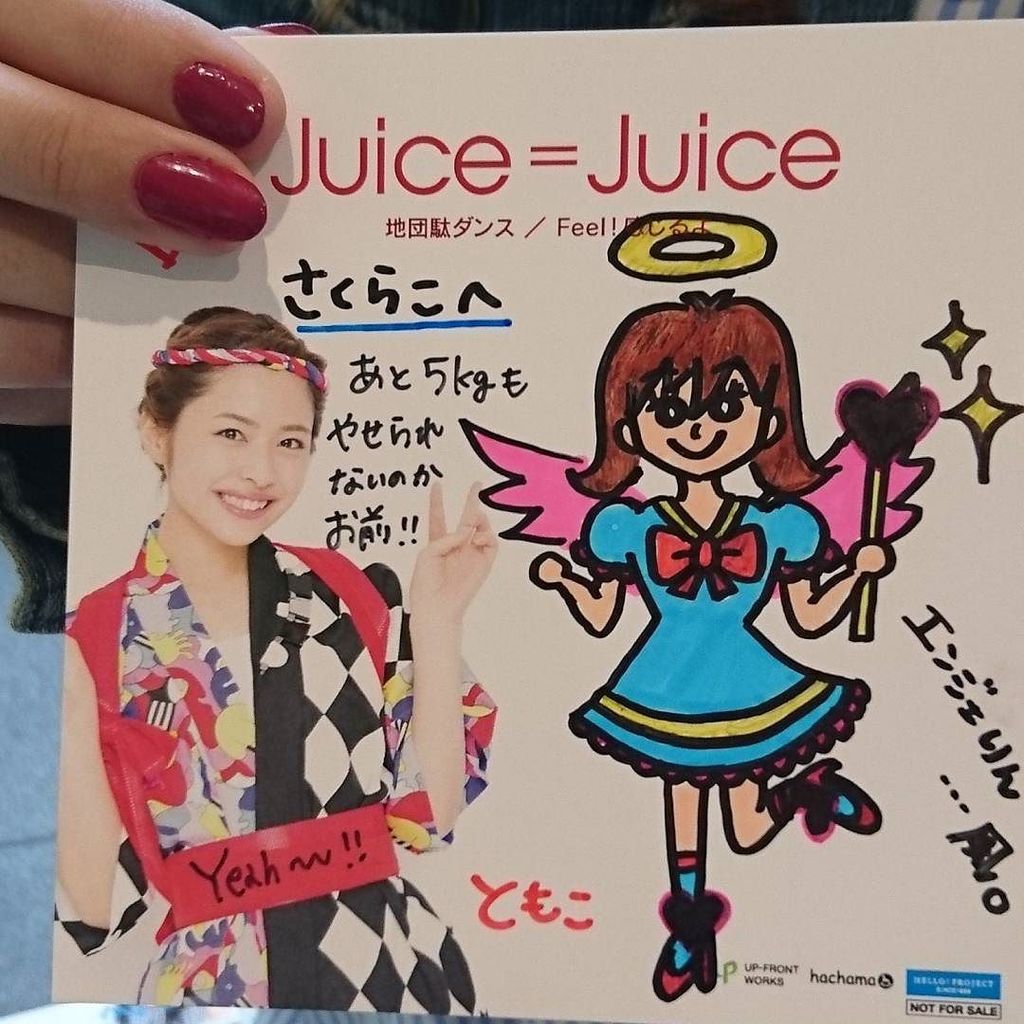 Juice=Juice
地団駄ダンス ／ Feel!感じるよ
さくらこへ
あと5kgも
やせられ
ないのか
お前!!
エンジェりん
…風。
Yeah～～!!
ともこ
UP-FRONT
WORKS
hachama
HELLO! PROJECT
NOT FOR SALE